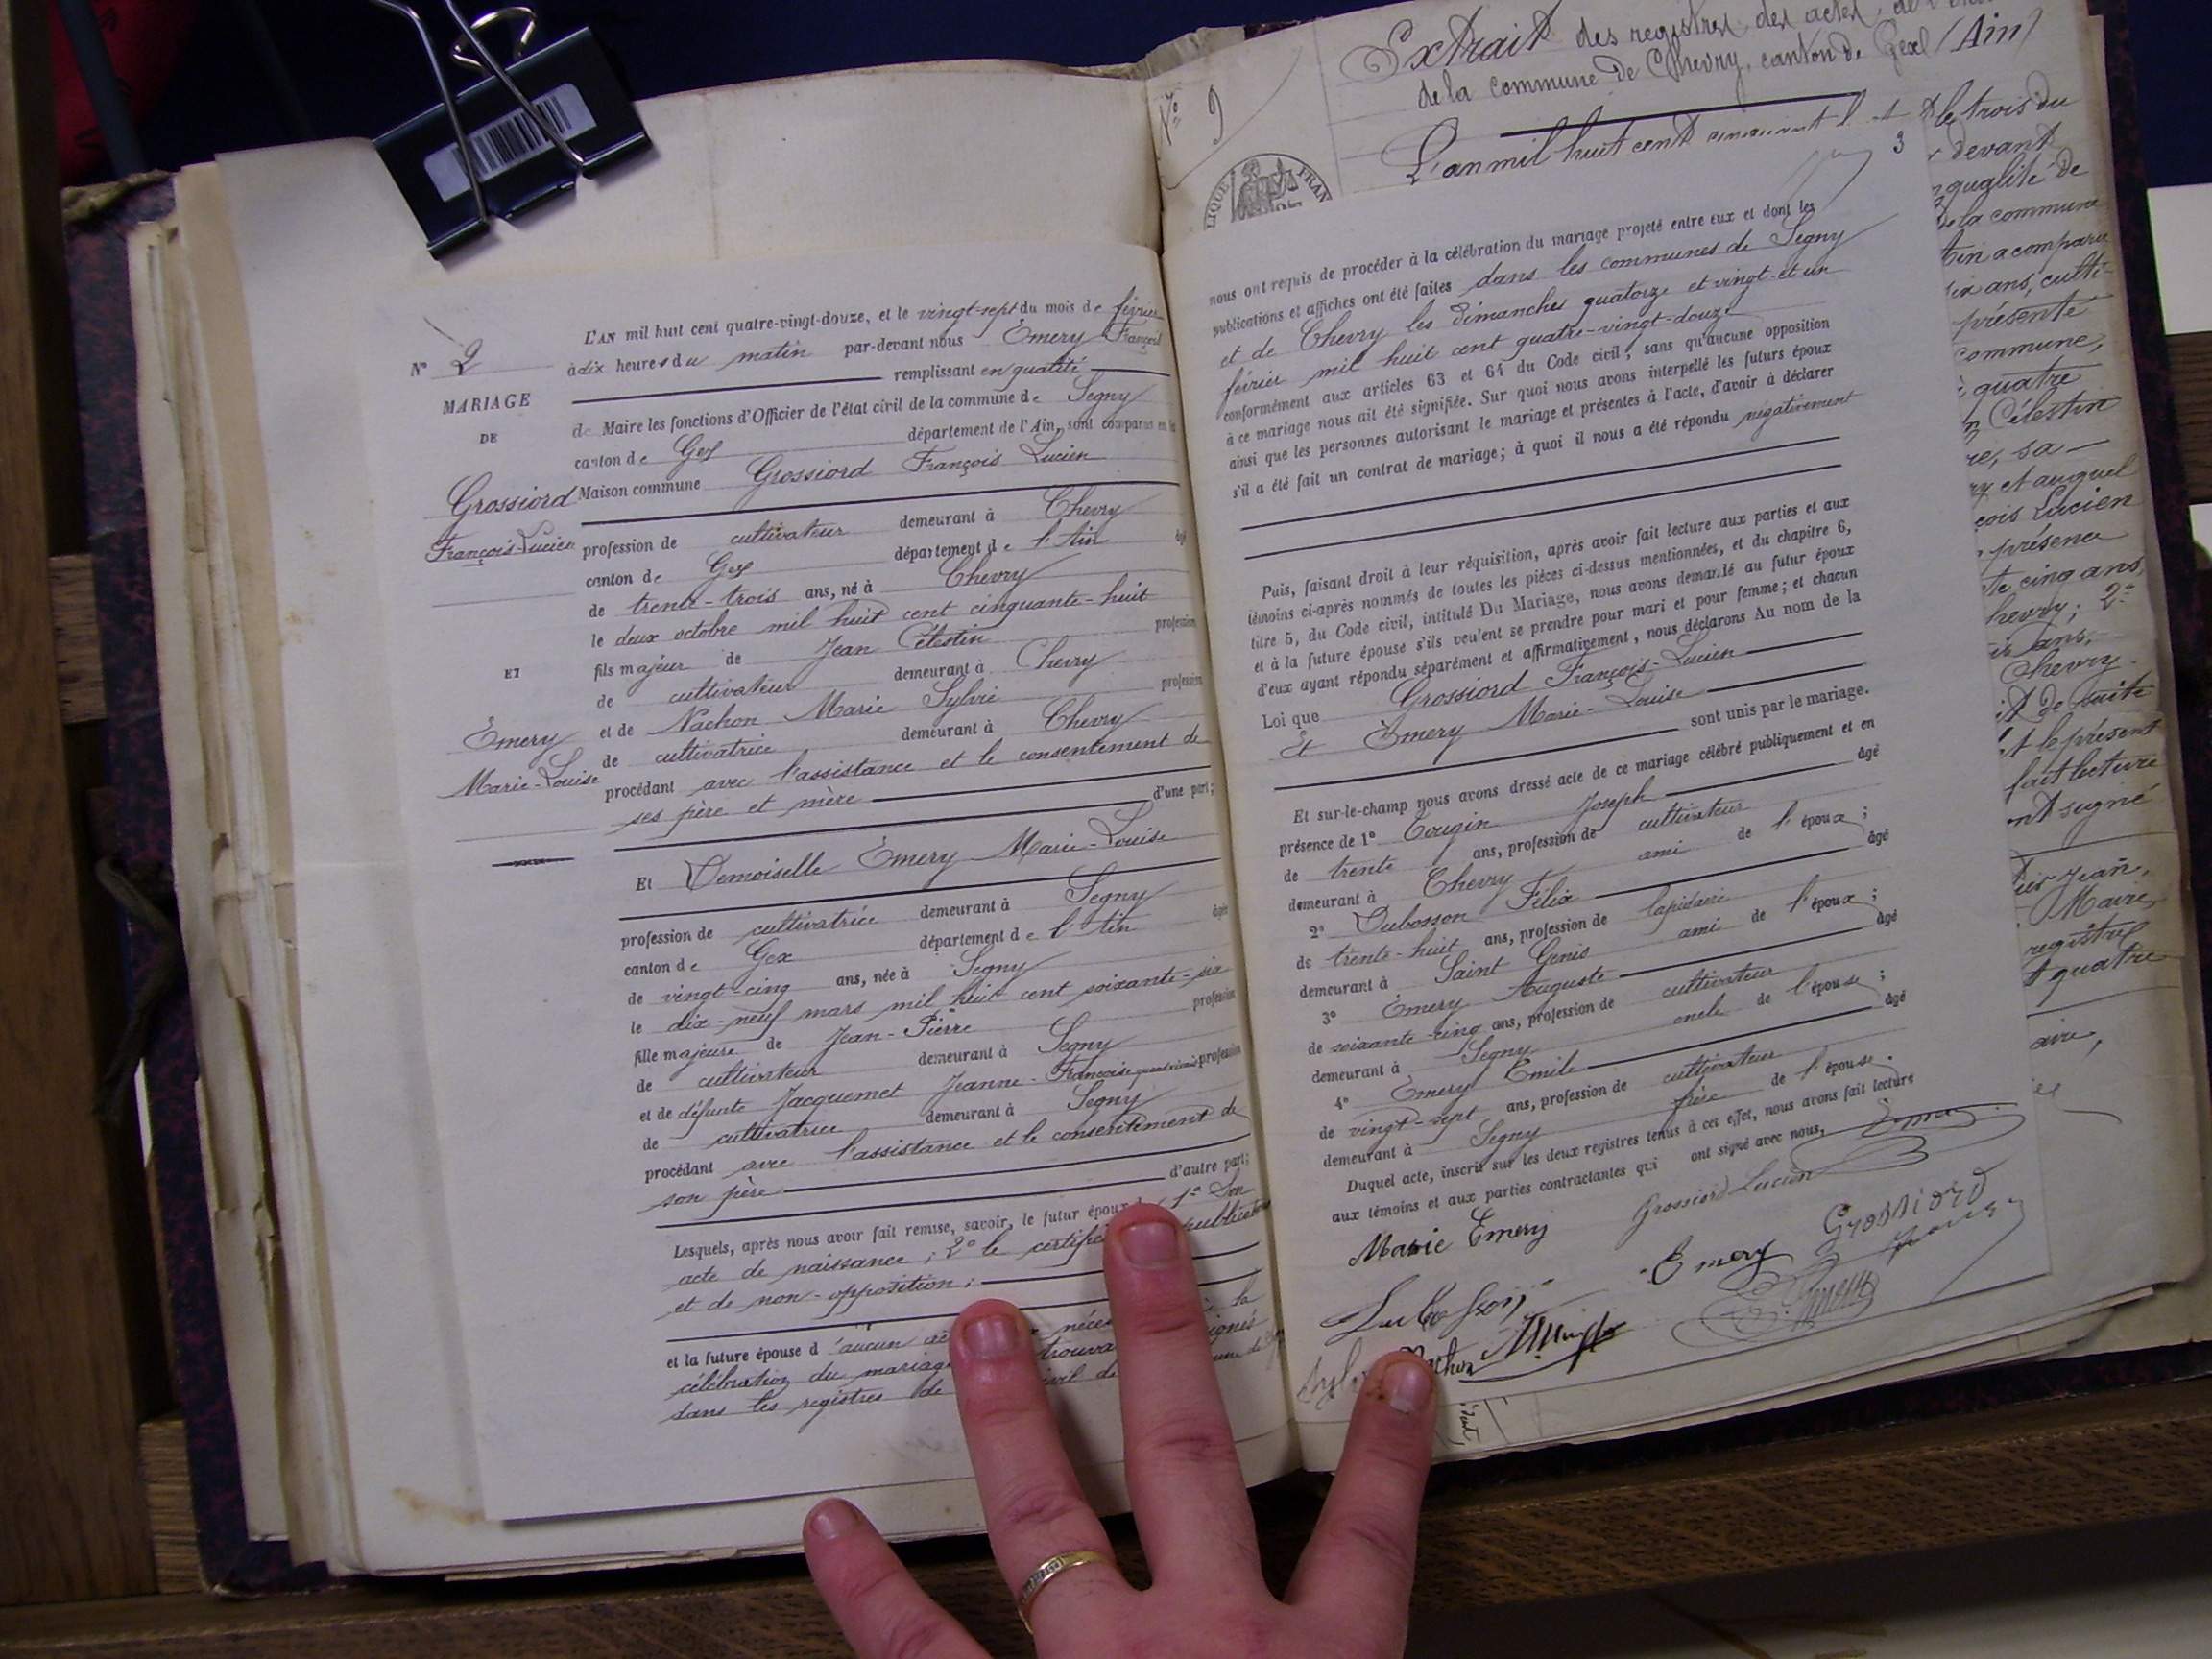 N° 2
MARIAGE
DE
Grossiord
François-Lucien
ET
Emery
Marie-Louise
L'AN mil huit cent quatre-vingt-douze, et le vingt-sept du mois de février
à dix heures du matin par-devant nous Emery François
remplissant en qualité
de Maire les fonctions d'Officier de l'état civil de la commune de Segny
canton de Gex département de l'Ain, sont comparus en la
Maison commune Grossiord François Lucien
profession de cultivateur demeurant à Chevry
canton de Gex département de l'Ain âgé
de trente-trois ans, né à Chevry
le deux octobre mil huit cent cinquante-huit
fils majeur de Jean Célestin profession
de cultivateur demeurant à Chevry
et de Nachon Marie Sylvie profession
de cultivatrice demeurant à Chevry
procédant avec l'assistance et le consentement de
ses père et mère d'une part;
Et Demoiselle Emery Marie-Louise
profession de cultivatrice demeurant à Segny
canton de Gex département de l'Ain âgée
de vingt-cinq ans, née à Segny
le dix-neuf mars mil huit cent soixante-six
fille majeure de Jean-Pierre profession
de cultivateur demeurant à Segny
et de défunte Jacquemet Jeanne-Françoise quand vivait profession
de cultivatrice demeurant à Segny
procédant avec l'assistance et le consentement de
son père d'autre part;
Lesquels, après nous avoir fait remise, savoir, le futur époux 1° Son
acte de naissance; 2° le publication
et de non-opposition;
et la future épouse d'aucun
célébration du mariage
dans les registres de
N° 9
Extrait des registres des actes de
de la commune de Chevry, canton de Gex (Ain)
L'an mil huit cent
3
LIQUE FRAN
nous ont requis de procéder à la célébration du mariage projeté entre eux et dont les
publications et affiches ont été faites dans les communes de Segny
et de Chevry les dimanches quatorze et vingt-et-un
février mil huit cent quatre-vingt-douze
conformément aux articles 63 et 64 du Code civil; sans qu'aucune opposition
à ce mariage nous ait été signifiée. Sur quoi nous avons interpellé les futurs époux
ainsi que les personnes autorisant le mariage et présentes à l'acte, d'avoir à déclarer
s'il a été fait un contrat de mariage; à quoi il nous a été répondu négativement
Puis, faisant droit à leur réquisition, après avoir fait lecture aux parties et aux
témoins ci-après nommés de toutes les pièces ci-dessus mentionnées, et du chapitre 6,
titre 5, du Code civil, intitulé Du Mariage, nous avons demandé au futur époux
et à la future épouse s'ils veulent se prendre pour mari et pour femme; et chacun
d'eux ayant répondu séparément et affirmativement, nous déclarons Au nom de la
Loi que Grossiord François-Lucien
Et Emery Marie-Louise sont unis par le mariage.
Et sur-le-champ nous avons dressé acte de ce mariage célébré publiquement et en
présence de 1° Tougin Joseph âgé
de trente ans, profession de cultivateur
demeurant à Chevry ami de l'époux;
2° Dubosson Félix âgé
de trente-huit ans, profession de lapidaire
demeurant à Saint Genis ami de l'époux;
3° Emery Auguste âgé
de soixante-cinq ans, profession de cultivateur
demeurant à Segny oncle de l'épouse;
4° Emery Emile âgé
de vingt-sept ans, profession de cultivateur
demeurant à Segny frère de l'épouse.
Duquel acte, inscrit sur les deux registres tenus à cet effet, nous avons fait lecture
aux témoins et aux parties contractantes qui ont signé avec nous,
Marie Emery Grossiord Lucien
Emery Grossiord
le trois du
devant
qualité de
de la commune
tin a comparu
ans, culti-
présenté
commune,
quatre
Célestin
sa
et auquel
Lucien
présence
cinq ans,
2°
ans,
Chevry.
de suite
le présent
fait lecture
signé
Jean,
Maire,
registres
quatre